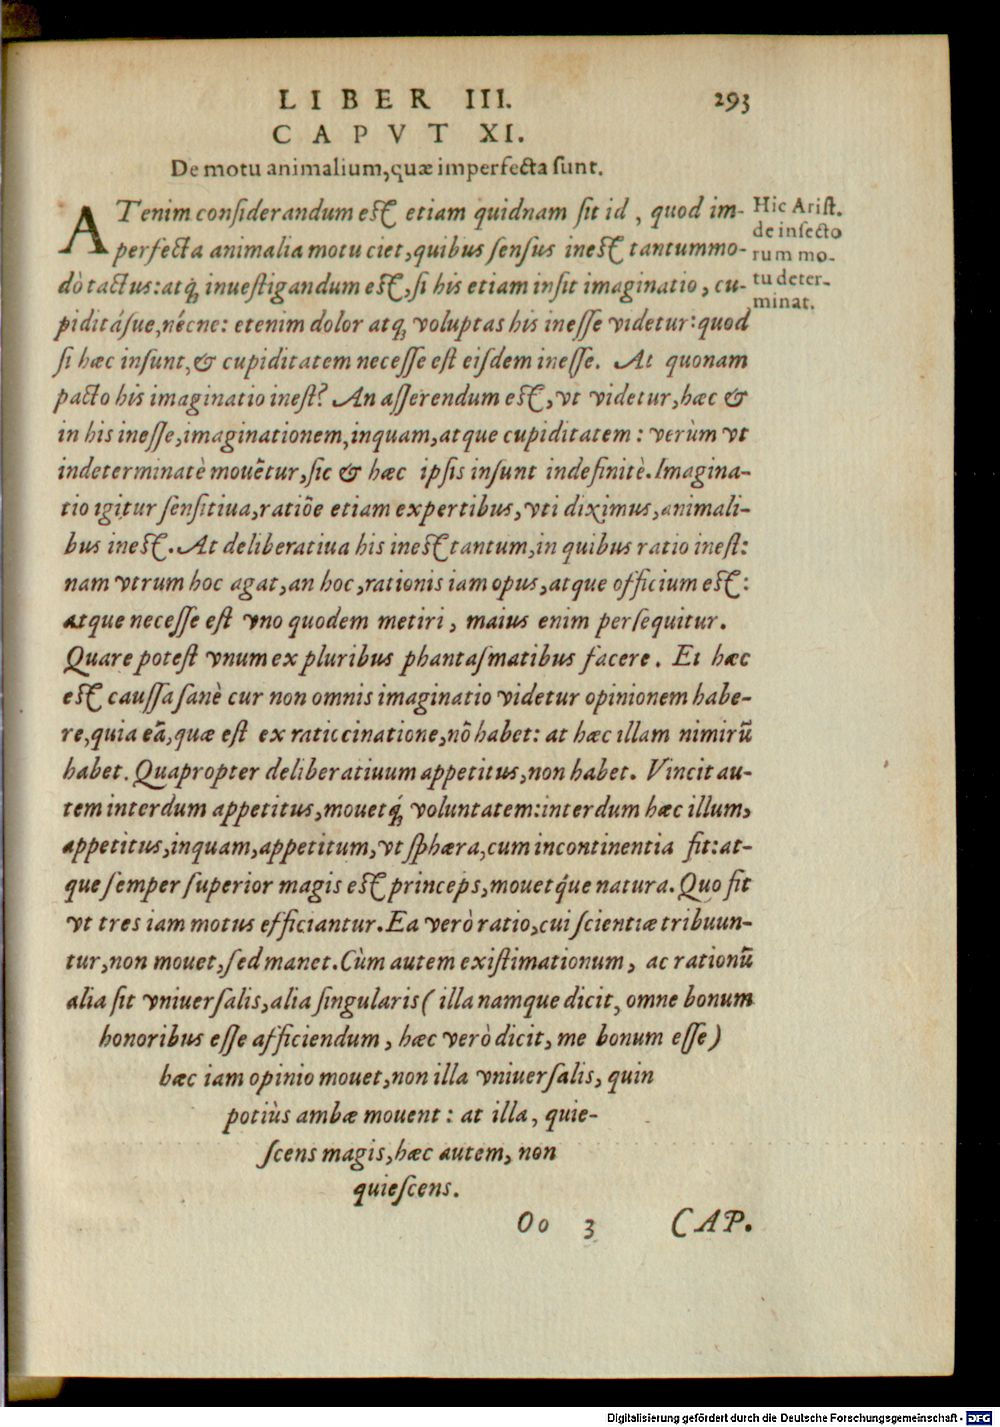 LIBER III. 293
CAPVT XI.
De motu animalium, quæ imperfecta sunt.
ATenim considerandum est etiam quidnam sit id, quod im-
perfecta animalia motu ciet, quibus sensus inest tantummo-
dò tactus: atq́; inuestigandum est, si his etiam insit imaginatio, cu-
piditásue, nécne: etenim dolor atq; voluptas his inesse videtur: quod
si hæc insunt, & cupiditatem necesse est eisdem inesse. At quonam
pacto his imaginatio inest? An asserendum est, vt videtur, hæc &
in his inesse, imaginationem, inquam, atque cupiditatem: verùm vt
indeterminatè mouẽtur, sic & hæc ipsis insunt indefinitè. Imagina-
tio igitur sensitiua, ratiõe etiam expertibus, vti diximus, animali-
bus inest. At deliberatiua his inest tantum, in quibus ratio inest:
nam vtrum hoc agat, an hoc, rationis iam opus, atque officium est:
atque necesse est vno quodem metiri, maius enim persequitur.
Quare potest vnum ex pluribus phantasmatibus facere. Et hæc
est caussa sanè cur non omnis imaginatio videtur opinionem habe-
re, quia eã, quæ est ex raticcinatione, nõ habet: at hæc illam nimirũ
habet. Quapropter deliberatiuum appetitus, non habet. Vincit au-
tem interdum appetitus, mouetq́; voluntatem: interdum hæc illum,
appetitus, inquam, appetitum, vt sphæra, cum incontinentia fit: at-
que semper superior magis est princeps, mouetq́ue natura. Quo fit
vt tres iam motus efficiantur. Ea verò ratio, cui scientiæ tribuun-
tur, non mouet, sed manet. Cùm autem existimationum, ac rationũ
alia sit vniuersalis, alia singularis (illa namque dicit, omne bonum
honoribus esse afficiendum, hæc verò dicit, me bonum esse)
hæc iam opinio mouet, non illa vniuersalis, quin
potiùs ambæ mouent: at illa, quie-
scens magis, hæc autem, non
quiescens.
Oo 3 CAP.
Hic Arist.
de insecto
rum mo-
tu deter-
minat.
Digitalisierung gefördert durch die Deutsche Forschungsgemeinschaft - DFG